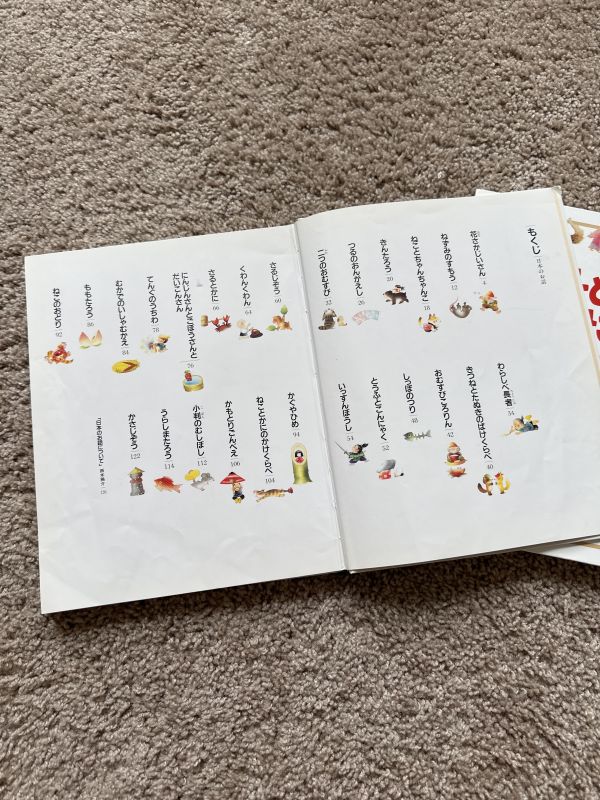 もくじ 日本のお話
花さかじいさん 4
ねずみのすもう 12
ねことちゃんちゃんこ 18
きんたろう 20
つるのおんがえし 26
二つのおむすび 33
わらしべ長者 34
きつねとたぬきのばけくらべ 40
おむすびころりん 42
しっぽのつり 48
とうふとこんにゃく 52
いっすんぼうし 54
さるじぞう 60
くわんくわん 64
さるとかに 66
にんじんさんとごぼうさんと
だいこんさん 76
てんぐのうちわ 78
むかでのいしゃむかえ 84
ももたろう 86
ねこのおどり 92
かぐやひめ 94
ねことかにのかけくらべ 104
かもとりごんべえ 106
小判のむしぼし 112
うらしまたろう 114
かさじぞう 122
「日本のお話について」 126